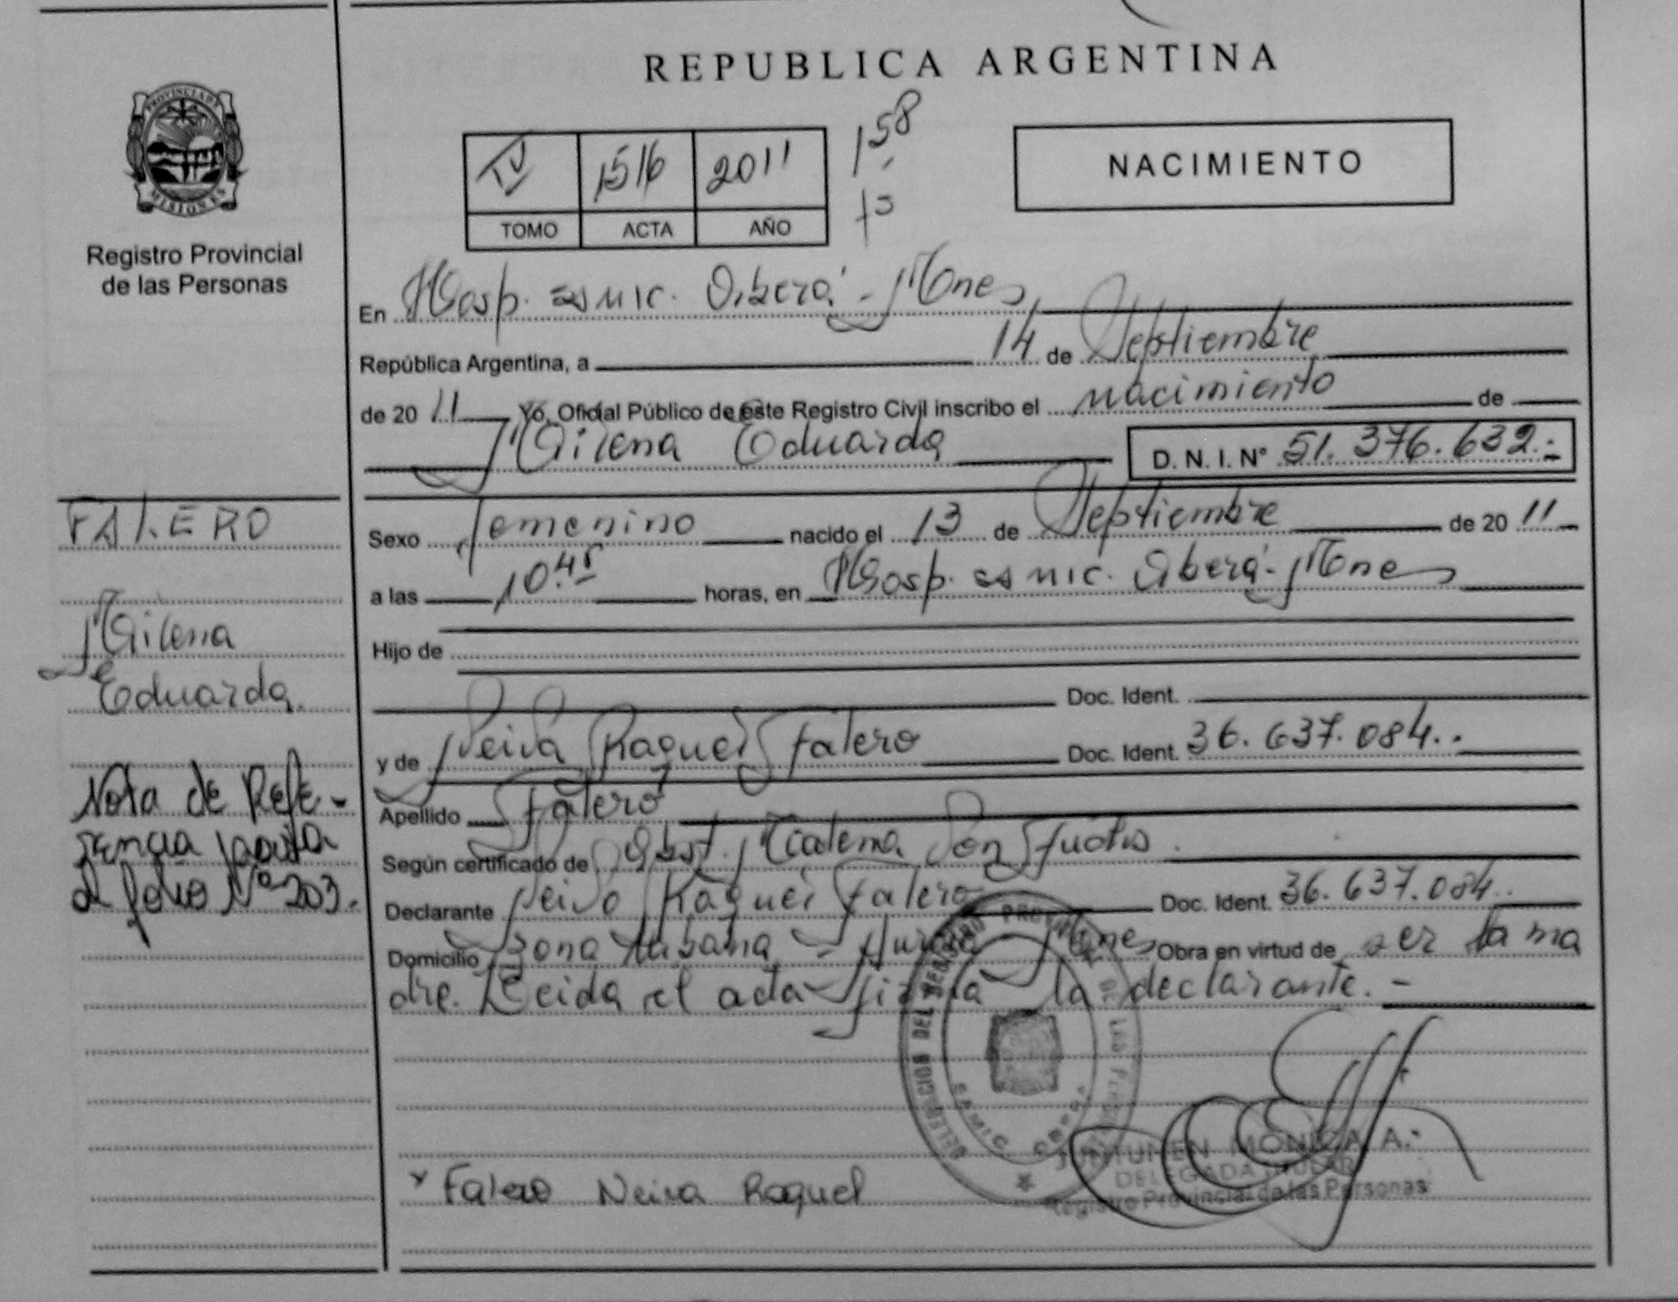 REPUBLICA ARGENTINA
PROVINCIA DE MISIONES
Registro Provincial
de las Personas
IV 1516 2011
TOMO ACTA AÑO
158
NACIMIENTO
En Hosp. Oberá - Mnes
República Argentina, a 14 de Septiembre
de 2011 Yo, Oficial Público de este Registro Civil inscribo el nacimiento de
Milena Eduarda D. N. I. N° 51.376.632.-
Sexo femenino nacido el 13 de Septiembre de 2011
a las 10.45 horas, en Hosp. Oberá - Mnes
Hijo de
Doc. Ident.
y de Neiva Raquel Falero Doc. Ident. 36.637.084..
Apellido Falero
Según certificado de Obst.
Declarante Neiva Raquel Falero Doc. Ident. 36.637.084..
Domicilio zona urbana - Mnes Obra en virtud de ser la ma
dre. Leida el acta firma la declarante. -
FALERO
Milena
Eduarda.
Nota de Refe-
rencia
al folio N° 203.
x Falero Neiva Raquel
DELEGACION DEL REGISTRO PROVINCIAL DE LAS PERSONAS
MONICA A.
DELEGADA TITULAR
Registro Provincial de las Personas